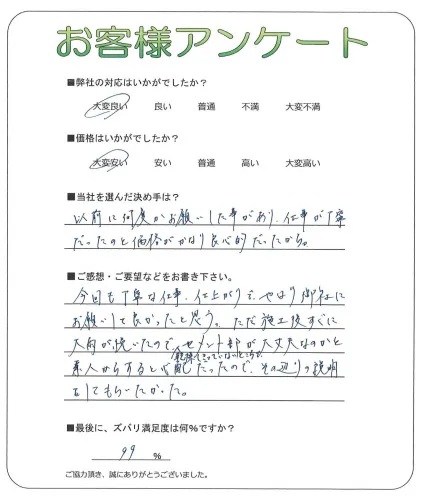 お客様アンケート
■弊社の対応はいかがでしたか？
大変良い 良い 普通 不満 大変不満
■価格はいかがでしたか？
大変安い 安い 普通 高い 大変高い
■当社を選んだ決め手は？
以前に何度かお願いした事があり、仕事が丁寧
だったのと価格がかなり良心的だったから。
■ご感想・ご要望などをお書き下さい。
今回も丁寧な仕事、仕上がりで、やはり御社に
お願いして良かったと思う。ただ施工後すぐに
大雨が続いたので、セメント部が大丈夫なのかと
乾燥しきっていないところが
素人からすると心配だったので、その辺りの説明
をしてもらいたかった。
■最後に、ズバリ満足度は何％ですか？
99 %
ご協力頂き、誠にありがとうございました。